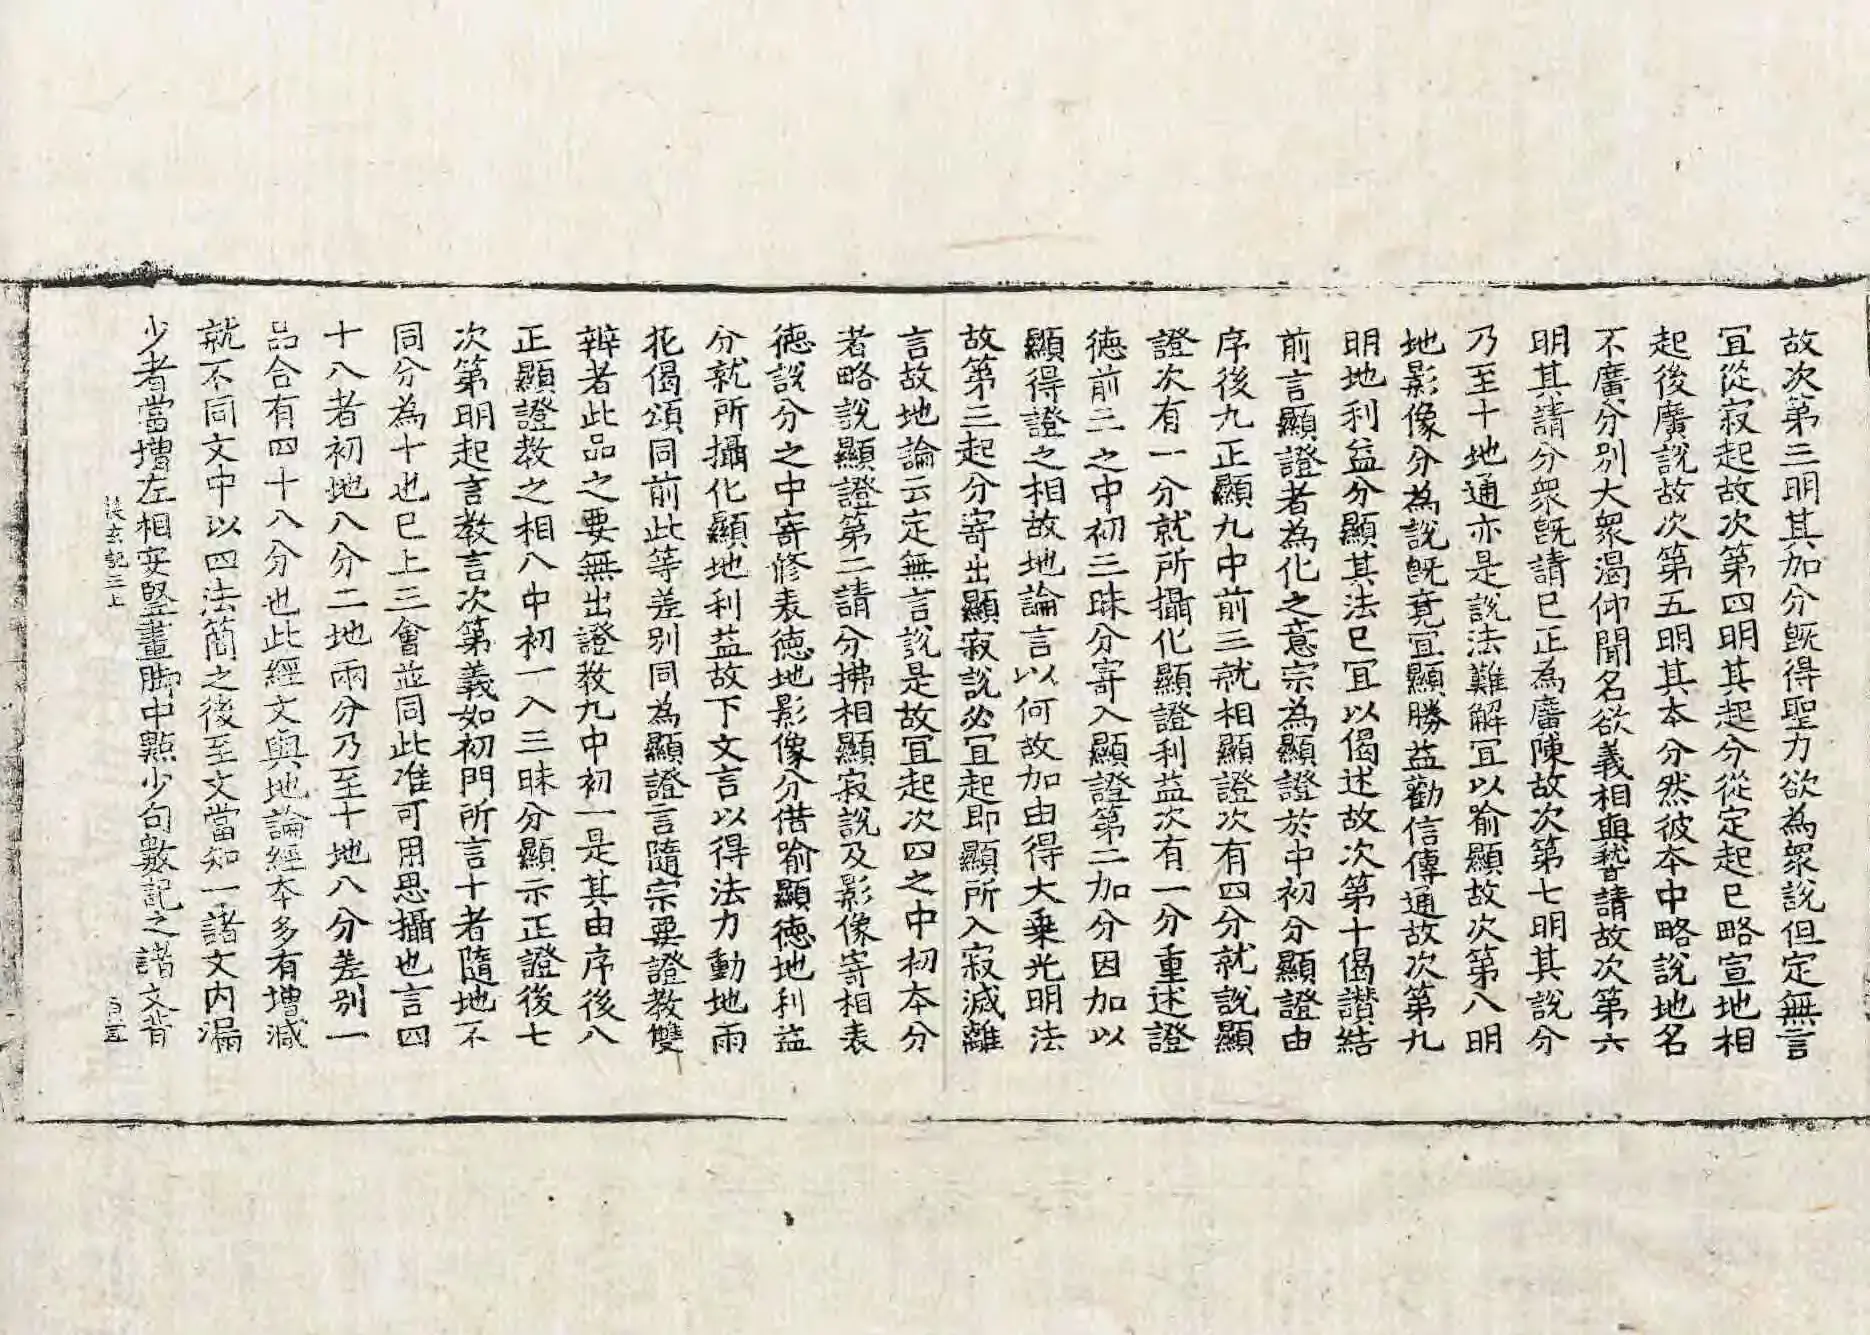 故次第三明其加分旣得聖力欲為衆說但定無言
冝從寂起故次第四明其起分從定起已略宣地相
起後廣說故次第五明其本分然彼本中略說地名
不廣分別大衆渴仰聞名欲義相與慗請故次第六
明其請分衆旣請已正為廣陳故次第七明其說分
乃至十地通亦是說法難解冝以喻顯故次第八明
地影像分為說旣竟冝顯勝益勸信傳通故次第九
明地利益分顯其法已冝以偈述故次第十偈讃結
前言顯證者為化之意宗為顯證於中初分顯證由
序後九正顯九中前三就相顯證次有四分就說顯
證次有一分就所攝化顯證利益次有一分重述證
德前二之中初三昧分寄入顯證第二加分因加以
顯得證之相故地論言以何故加由得大乗光明法
故第三起分寄出顯寂說必冝起即顯所入寂滅離
言故地論云定無言說是故冝起次四之中初本分
者略說顯證第二請分拂相顯寂說及影像寄相表
德說分之中寄修表德地影像分借喻顯德地利益
分就所攝化顯地利益故下文言以得法力動地雨
花偈頌同前此等差別同為顯證言隨宗要證教雙
辨者此品之要無出證教九中初一是其由序後八
正顯證教之相八中初一入三昧分顯示正證後七
次第明起言教言次第義如初門所言十者隨地不
同分為十也已上三會並同此准可用思攝也言四
十八者初地八分二地兩分乃至十地八分差別一
品合有四十八分也此經文與地論經本多有增減
就不同文中以四法簡之後至文當知一諸文內漏
少者當增左相安竪畫脚中點少句數記之諸文皆
三上